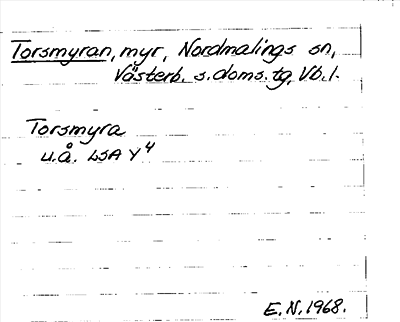 Torsmyran, myr, Nordmalings sn,
Västerb. s. doms. tg, Vb. l.
Torsmyra
u.å. LSA Y4
E.N. 1968.